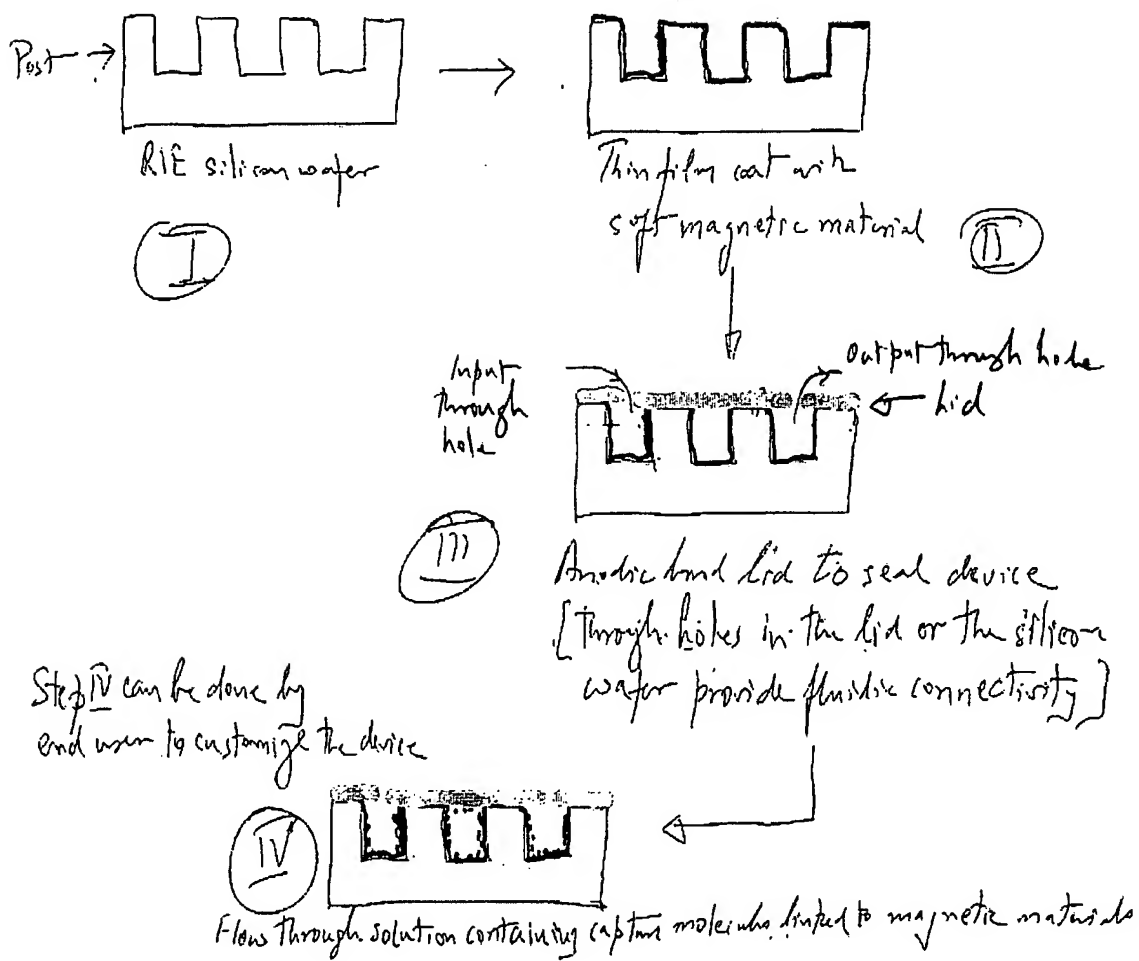 Post
RIE silicon wafer
I
Thin film coat with
soft magnetic material
II
Input
through
hole
output through hole
Lid
III
Anodic bond lid to seal device
[through-holes in the lid or the silicon
wafer provide fluidic connectivity]
Step IV can be done by
end user to customize the device
IV
Flow through solution containing capture molecules linked to magnetic materials